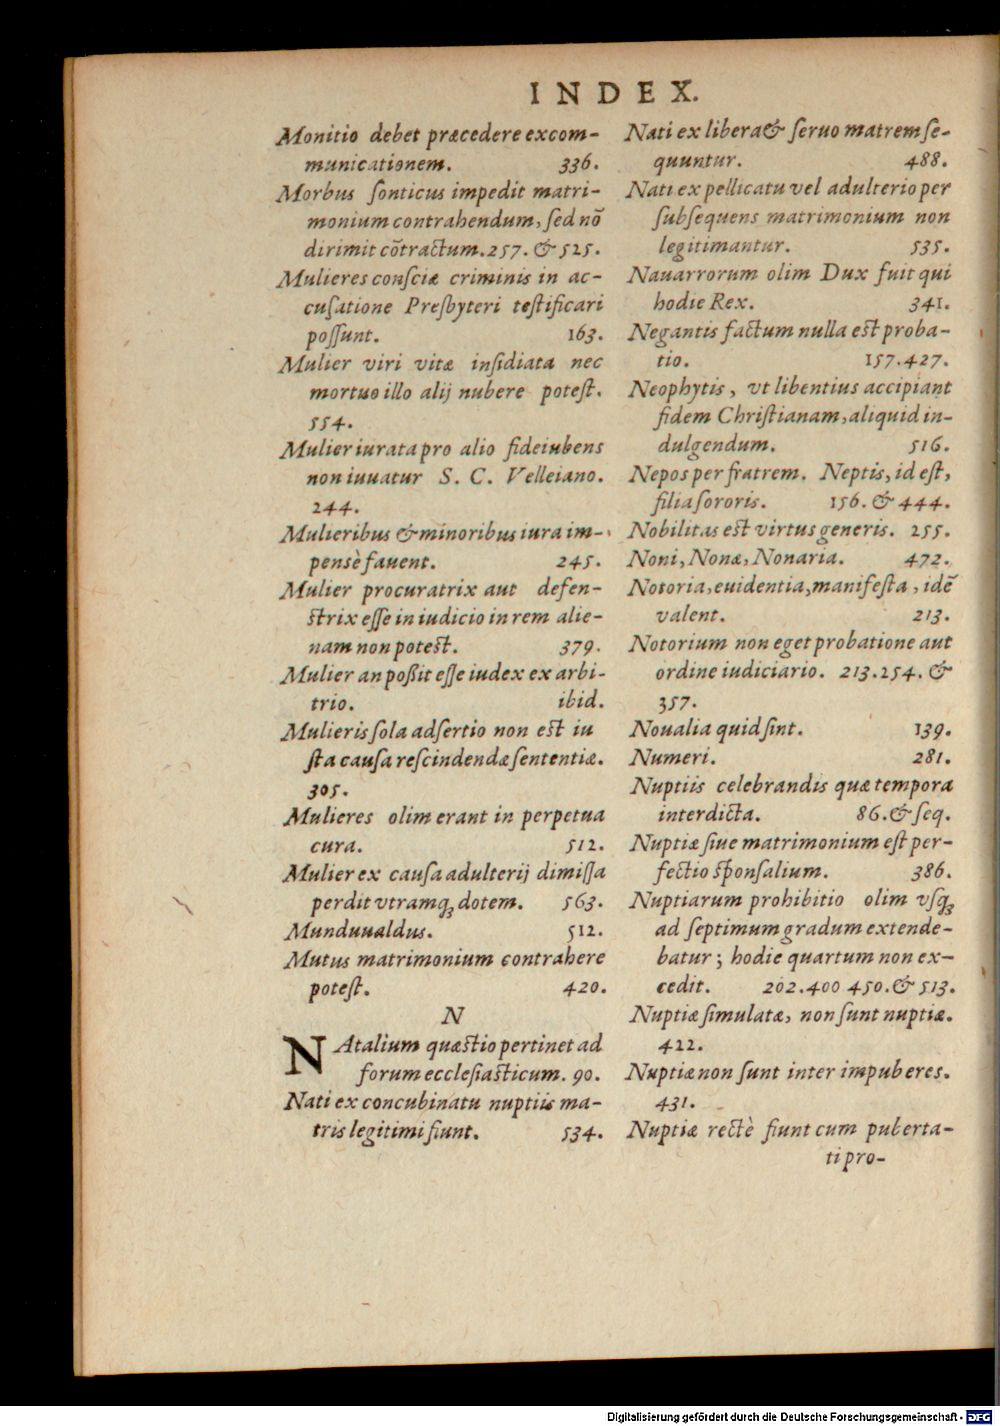 INDEX.
Monitio debet præcedere excom-
municationem. 336.
Morbus ſonticus impedit matri-
monium contrahendum, ſed nō
dirimit cōtractum. 257. & 525.
Mulieres conſciæ criminis in ac-
cuſatione Preſbyteri teſtificari
poſſunt. 163.
Mulier viri vitæ inſidiata nec
mortuo illo alij nubere poteſt.
554.
Mulier iurata pro alio fideiubens
non iuuatur S. C. Velleiano.
244.
Mulieribus & minoribus iura im-
pensè fauent. 245.
Mulier procuratrix aut defen-
ſtrix eſſe in iudicio in rem alie-
nam non poteſt. 379.
Mulier an poßit eſſe iudex ex arbi-
trio. ibid.
Mulieris ſola adſertio non eſt iu
ſta cauſa reſcindendæ ſententiæ.
305.
Mulieres olim erant in perpetua
cura. 512.
Mulier ex cauſa adulterij dimiſſa
perdit vtramq; dotem. 563.
Munduualdus. 512.
Mutus matrimonium contrahere
poteſt. 420.
N
NAtalium quæſtio pertinet ad
forum eccleſiaſticum. 90.
Nati ex concubinatu nuptiis ma-
tris legitimi fiunt. 534.
Nati ex libera & ſeruo matrem ſe-
quuntur. 488.
Nati ex pellicatu vel adulterio per
ſubſequens matrimonium non
legitimantur. 535.
Nauarrorum olim Dux fuit qui
hodie Rex. 341.
Negantis factum nulla eſt proba-
tio. 157. 427.
Neophytis, vt libentius accipiant
fidem Chriſtianam, aliquid in-
dulgendum. 516.
Nepos per fratrem. Neptis, id eſt,
filia ſororis. 156. & 444.
Nobilitas eſt virtus generis. 255.
Noni, Nonæ, Nonaria. 472.
Notoria, euidentia, manifeſta, idē
valent. 213.
Notorium non eget probatione aut
ordine iudiciario. 213. 254. &
357.
Noualia quid ſint. 139.
Numeri. 281.
Nuptiis celebrandis quæ tempora
interdicta. 86. & ſeq.
Nuptiæ ſiue matrimonium eſt per-
fectio ſponſalium. 386.
Nuptiarum prohibitio olim vſq;
ad ſeptimum gradum extende-
batur; hodie quartum non ex-
cedit. 202. 400 450. & 513.
Nuptiæ ſimulatæ, non ſunt nuptiæ.
422.
Nuptiæ non ſunt inter impuberes.
431.
Nuptiæ rectè fiunt cum puberta-
ti pro-
Digitalisierung gefördert durch die Deutsche Forschungsgemeinschaft - DFG